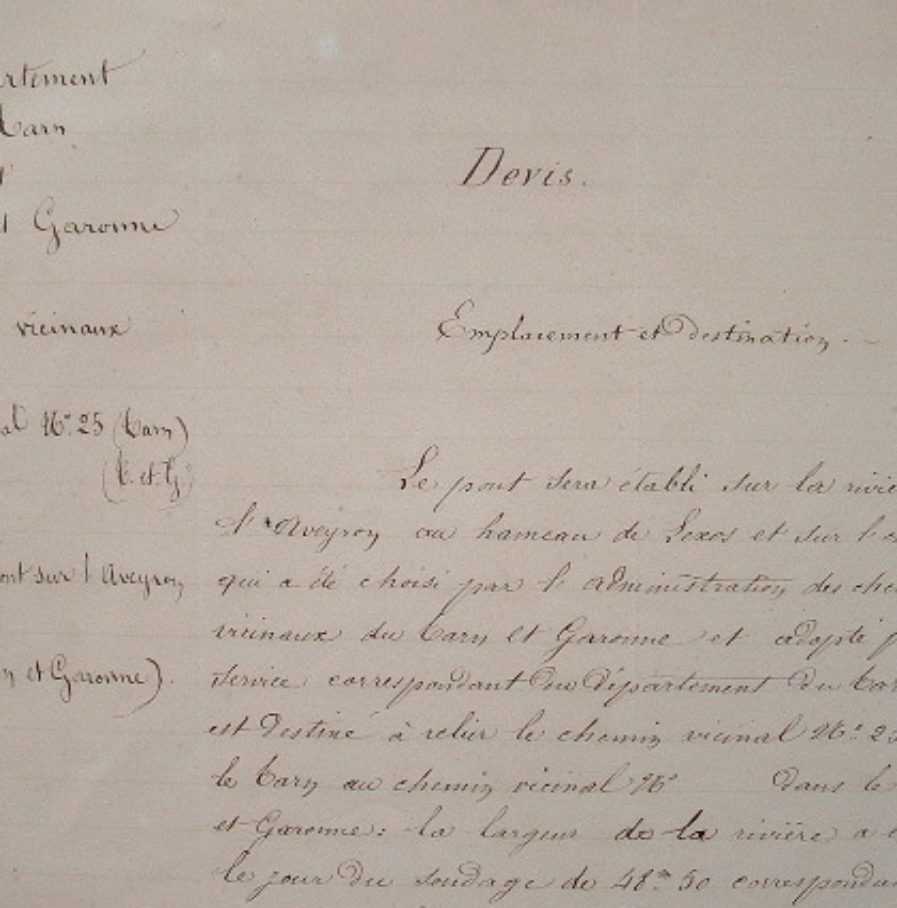 rtement
Tarn
et
et Garonne
vicinaux
al N° 25 (Tarn)
(T. et G.)
ont sur l'Aveyron
n et Garonne).
Devis.
Emplacement et destination. -
Le pont sera établi sur la riviè
d'Aveyron au hameau de Lexos et sur l'e
qui a été choisi par l'administration des che
vicinaux du Tarn et Garonne et adopté p
service correspondant du Département du Tar
est destiné à relier le chemin vicinal N° 25
le Tarn au chemin vicinal N° dans le
et Garonne: la largeur de la rivière a é
le jour du sondage de 48m 50 correspondan